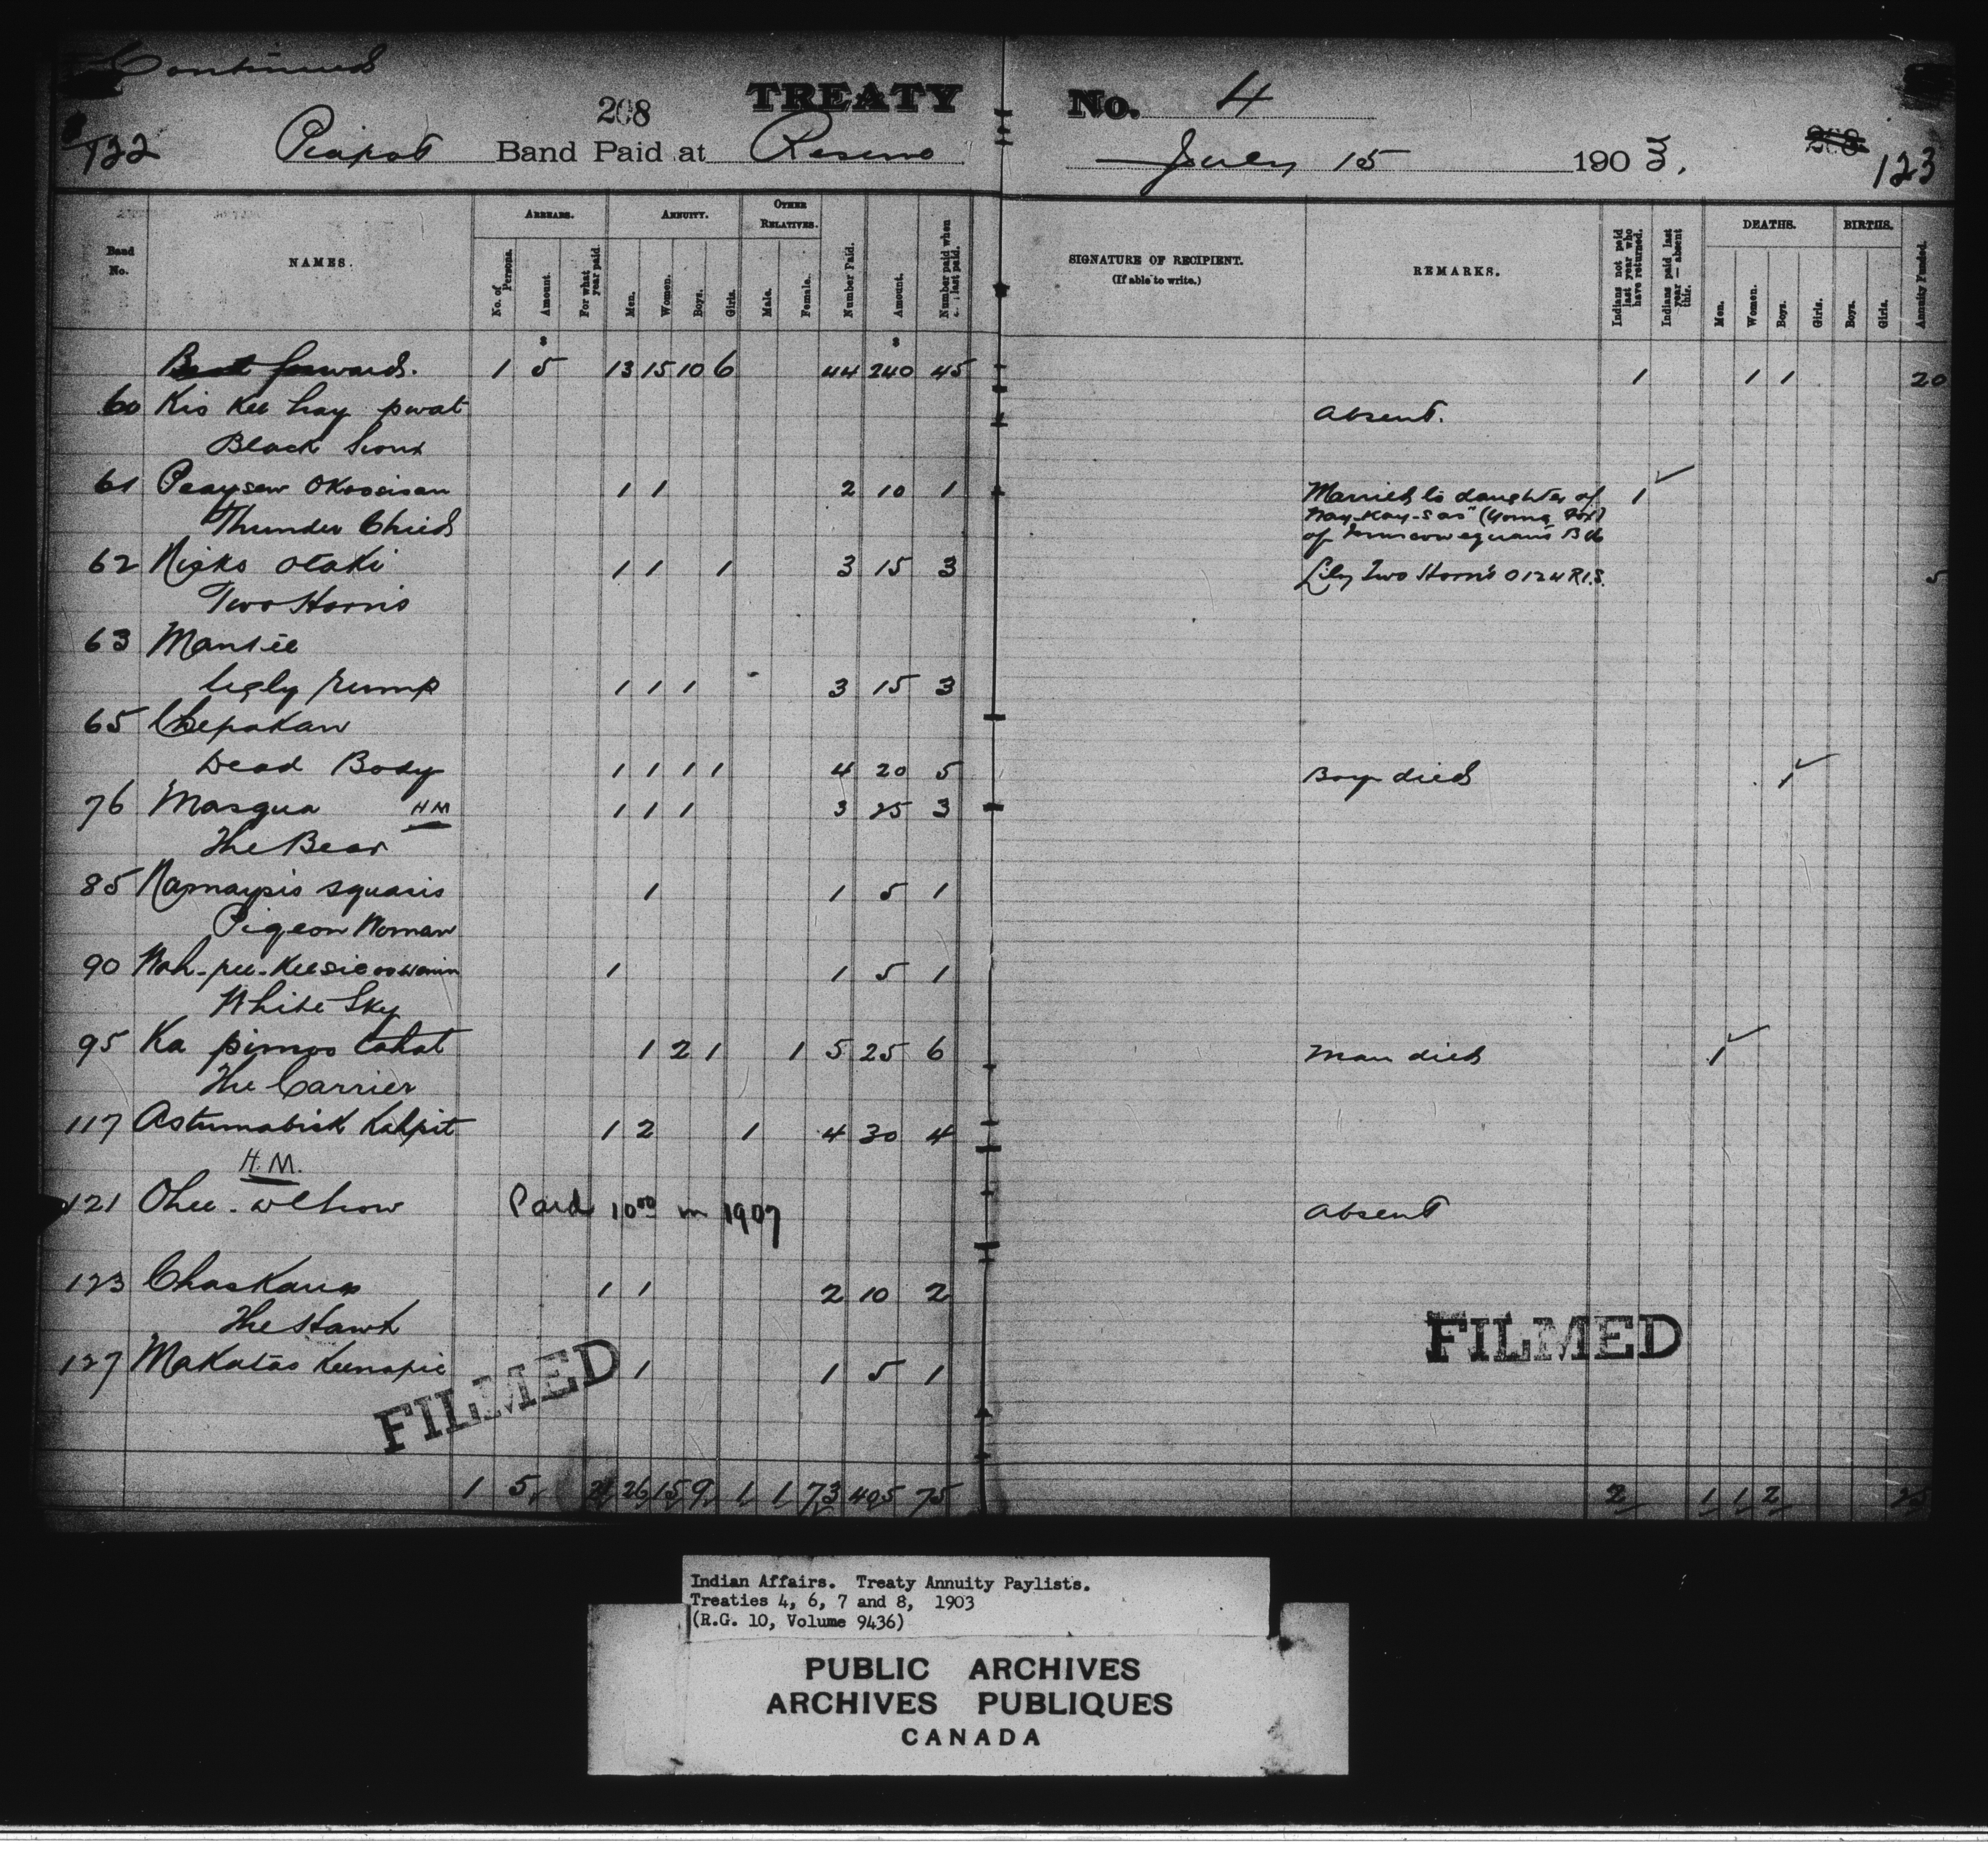 Continued
208 TREATY No. 4
122 Piapot Band Paid at Reserve July 15 1903. 208 123
Band No. NAMES. ARREARS. ANNUITY. OTHER RELATIVES. Number Paid. Amount. Number paid when last paid. SIGNATURE OF RECIPIENT. (If able to write.) REMARKS. Indians not paid last year who have returned. Indians paid last year — absent this. DEATHS. BIRTHS. Annuity Funded.
No. of Persons. Amount. For what year paid. Men. Women. Boys. Girls. Male. Female. Men. Women. Boys. Girls. Boys. Girls.
$ $
forward. 1 5 13 15 10 6 44 240 45 1 1 1 20
60 Kis Kee hay pwat Absent.
Black Sioux
61 Peaysew Okoosisan 1 1 2 10 1 Married to daughter of 1
Thunder Child "Nay-Kay-s as" (Young Fox)
of Bd
62 Nisko otaki 1 1 1 3 15 3 Lily Two Horns 0124 R.I.S. 5
Two Horns
63
Ugly rump 1 1 1 3 15 3
65 Chepakan
Dead Body 1 1 1 1 4 20 5 Boy died 1
76 Masqua HM 1 1 1 3 25 3
The Bear
85 squasis 1 1 5 1
Pigeon Woman
90 Wah-pee- 1 1 5 1
White Sky
95 Ka pimoo tahat 1 2 1 1 5 25 6 Man died 1
The Carrier
117 Astumabisk Kahpit 1 2 1 4 30 4
H.M.
121 Paid 10 00 in 1907 Absent
123 1 1 2 10 2
The Hawk
127 Makatas 1 1 5 1
FILMED FILMED
1 5 21 26 15 9 1 1 73 405 75 2 1 1 2 25
Indian Affairs. Treaty Annuity Paylists.
Treaties 4, 6, 7 and 8, 1903
(R.G. 10, Volume 9436)
PUBLIC ARCHIVES
ARCHIVES PUBLIQUES
CANADA